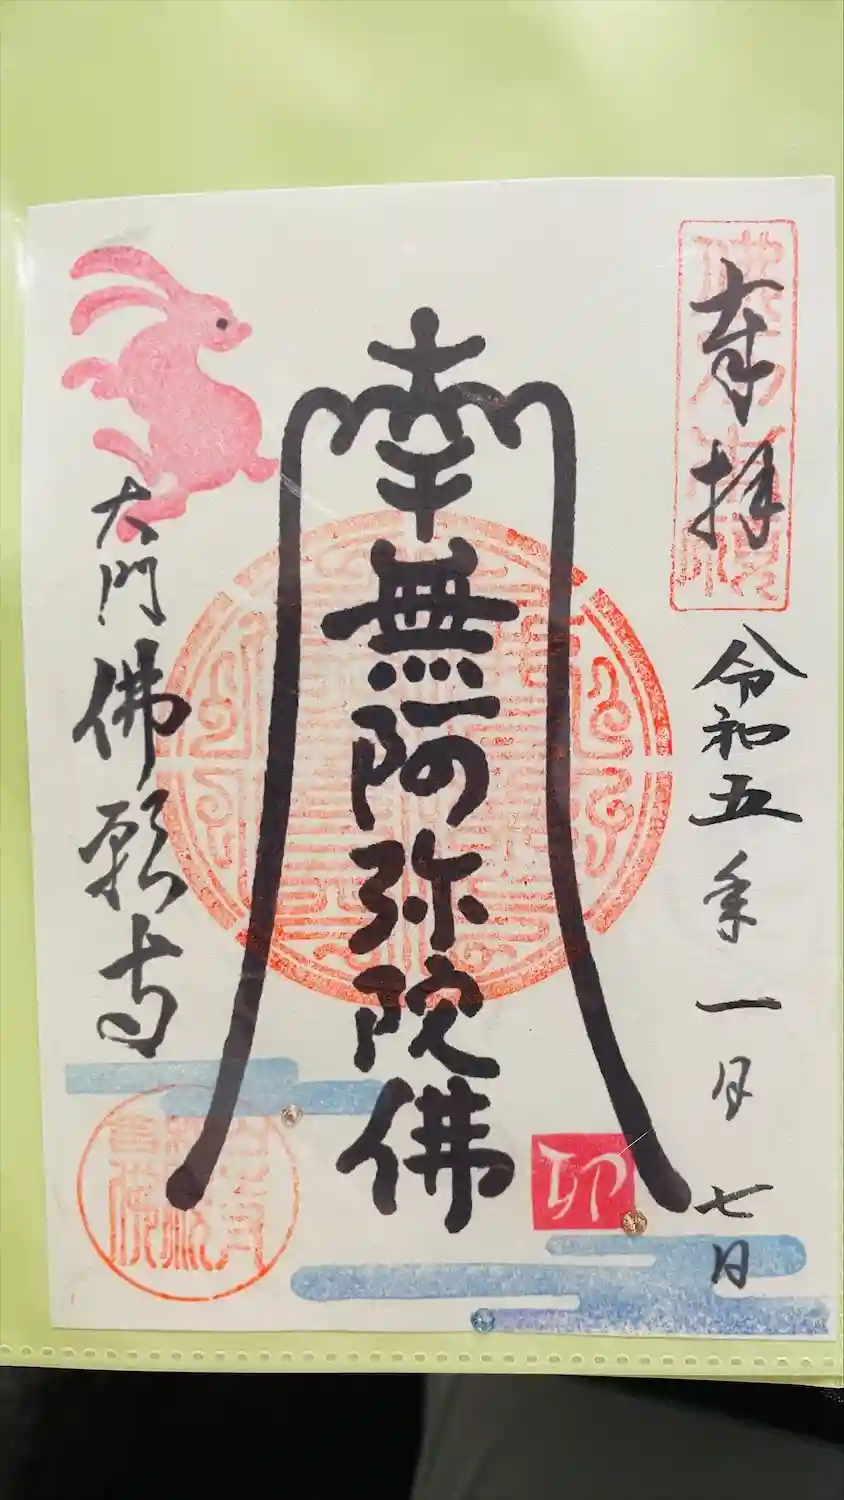 奉拝
令和五年一月七日
南無阿弥陀佛
卯
大門
佛願寺